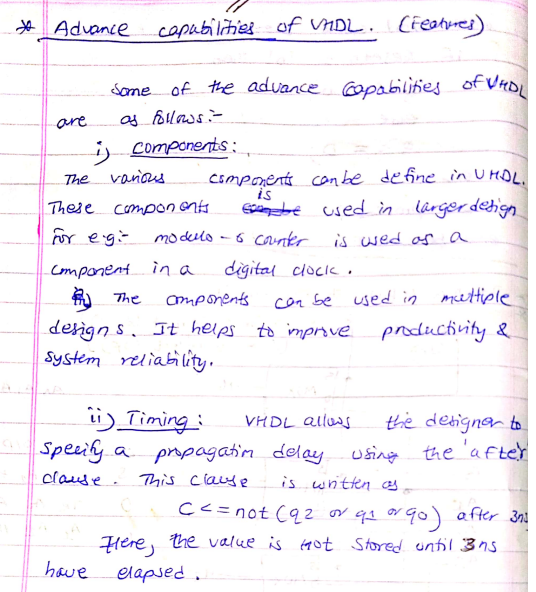 * Advance capabilities of VHDL. (Features)
Some of the advance capabilities of VHDL
are as follows:-
i) Components:
The various components can be define in VHDL.
These components is used in larger design
for e.g:- modulo-6 counter is used as a
component in a digital clock.
The components can be used in multiple
designs. It helps to improve productivity &
system reliability.
ii) Timing: VHDL allows the designer to
specify a propagation delay using the 'after'
clause. This clause is written as
C <= not (q2 or q1 or q0) after 3ns
Here, the value is not stored until 3ns
have elapsed.